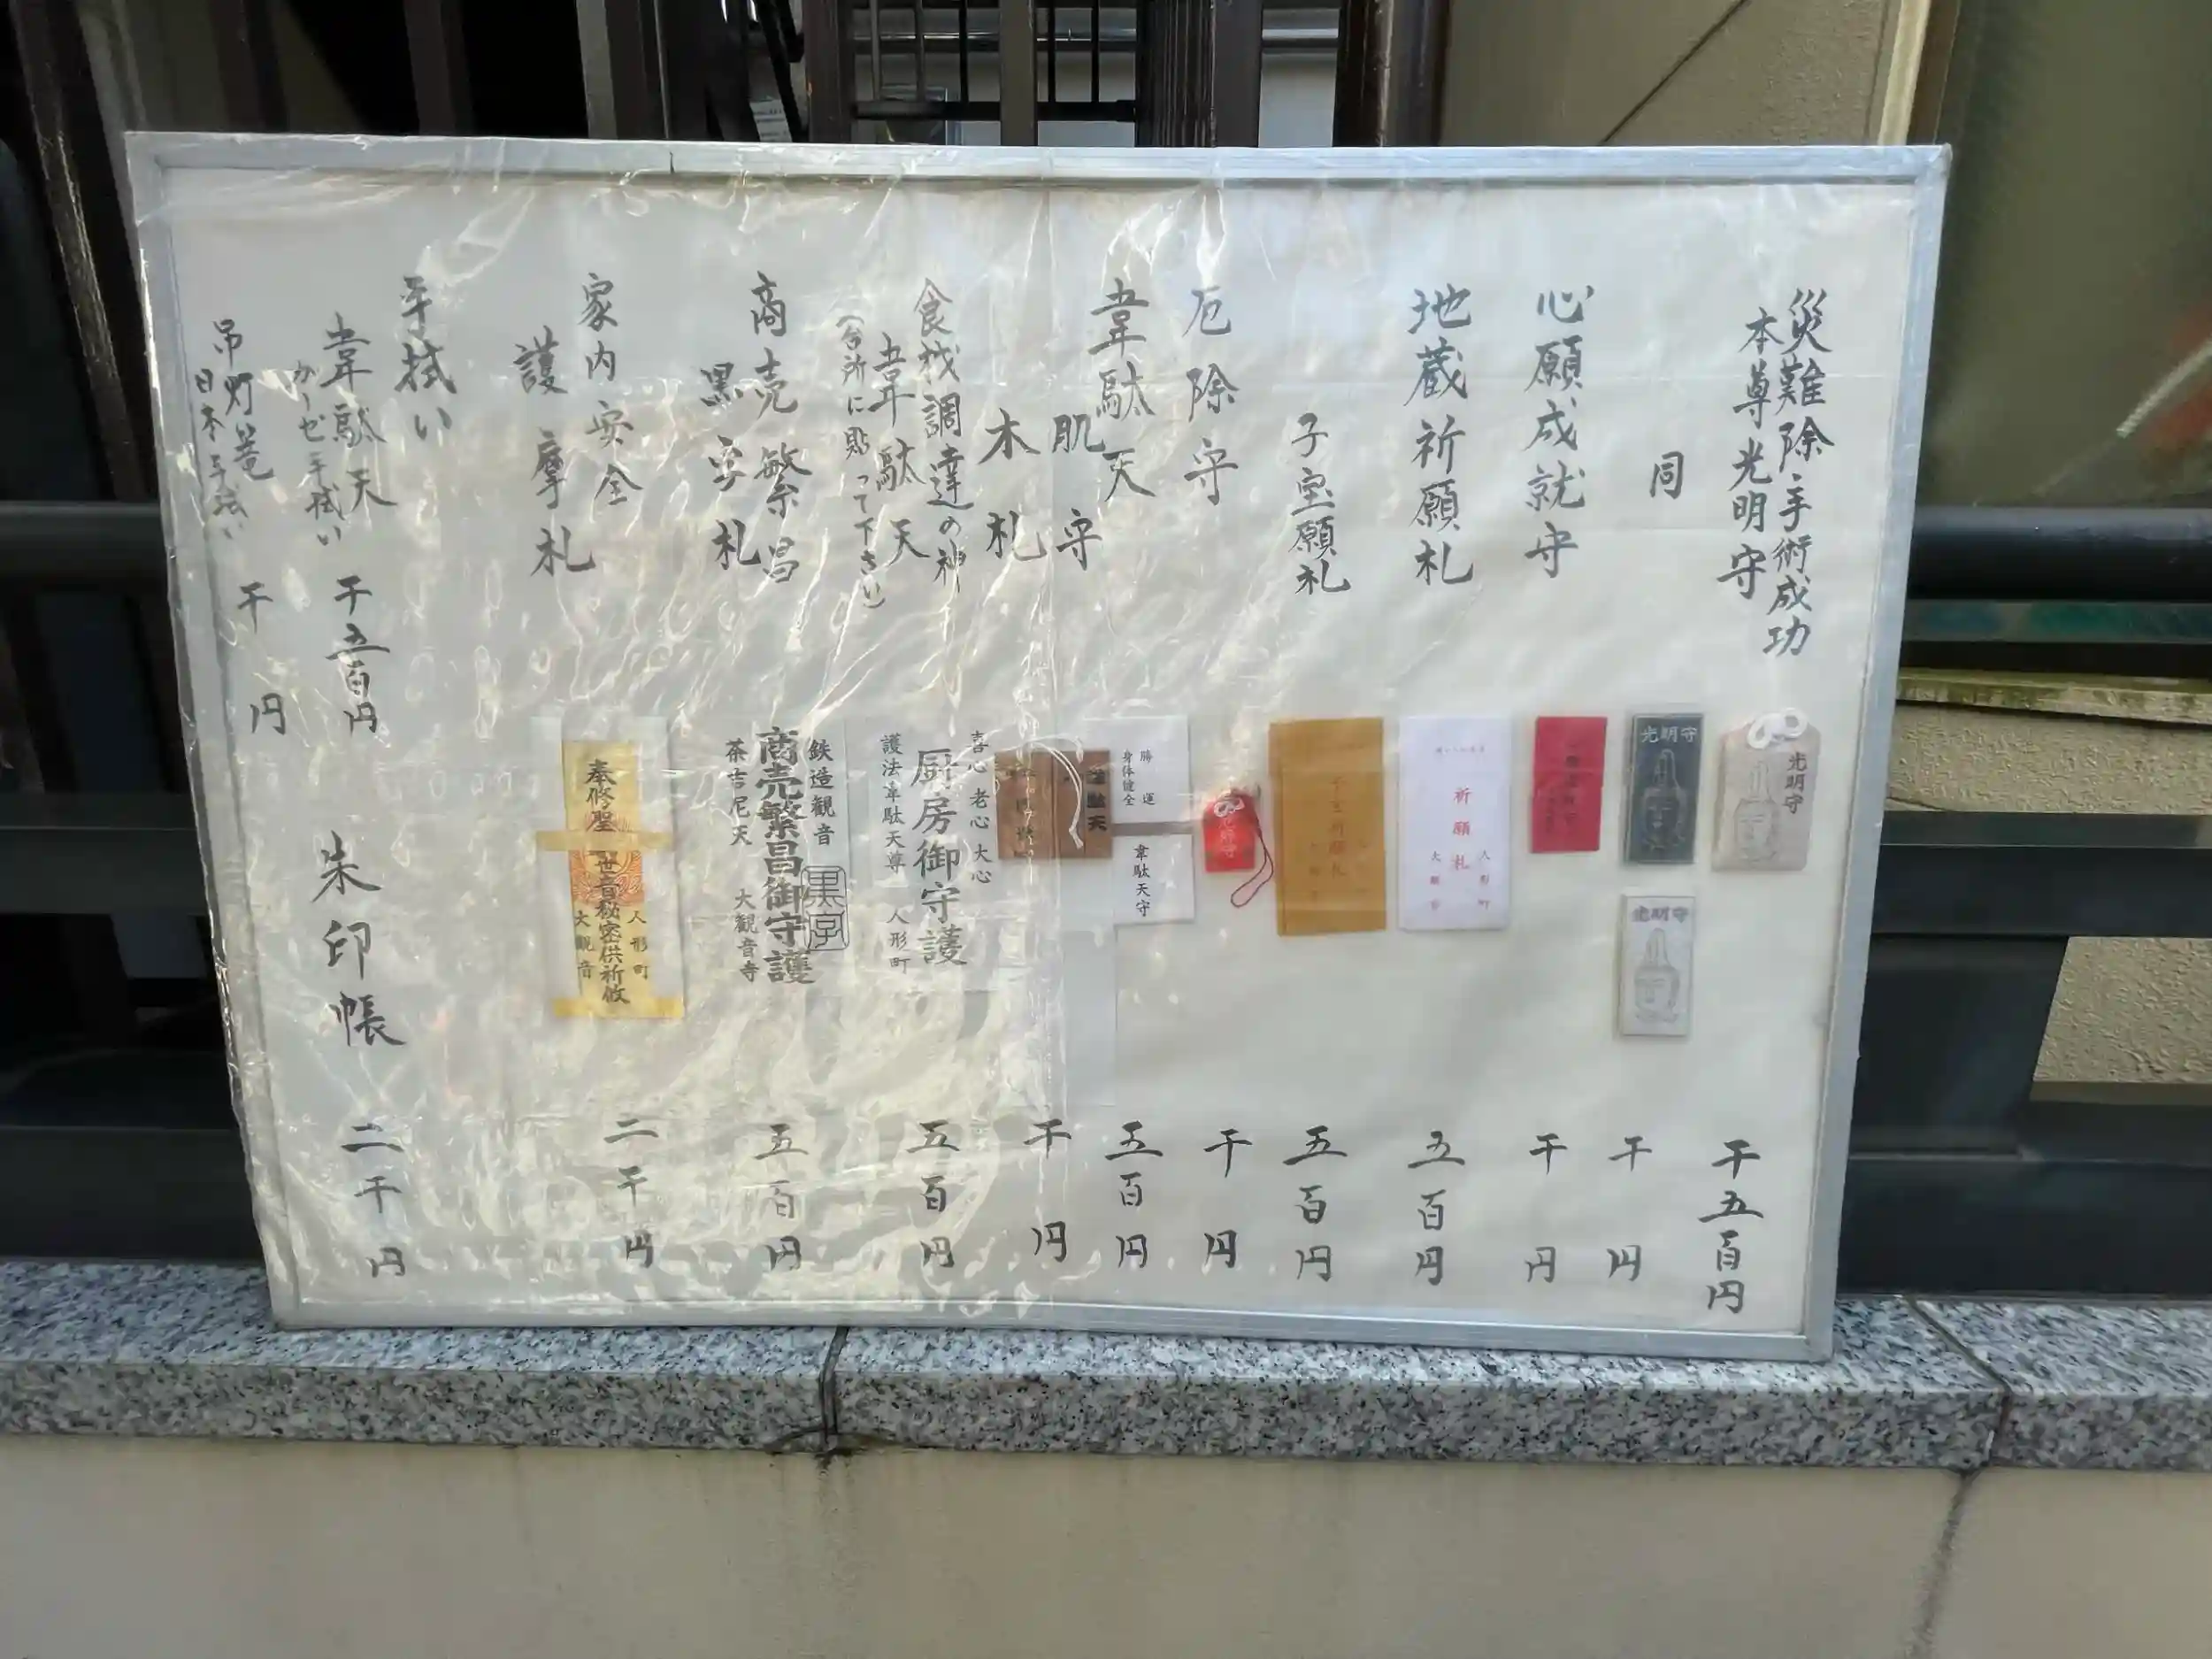 災難除手術成功
本尊光明守
千五百円
同
千円
心願成就守
千円
地蔵祈願札
五百円
子宝願札
五百円
厄除守
千円
韋駄天
肌守
五百円
木札
千円
食材調達の神
韋駄天
(台所に貼って下さい)
五百円
商売繁昌
黒字札
五百円
家内安全
護摩札
二千円
手拭い
韋駄天
ガーゼ手拭い
千五百円
吊灯篭
日本手拭い
千円
朱印帳
二千円
光明守
光明守
光明守
人形町
祈願札
大観音
勝運
身体健全
韋駄天守
韋駄天
喜心 老心 大心
厨房御守護
護法韋駄天尊 人形町
鉄造観音
黒字
商売繁昌御守護
茶吉尼天 大観音寺
人形町
奉修聖 世音秘密供祈攸
大観音